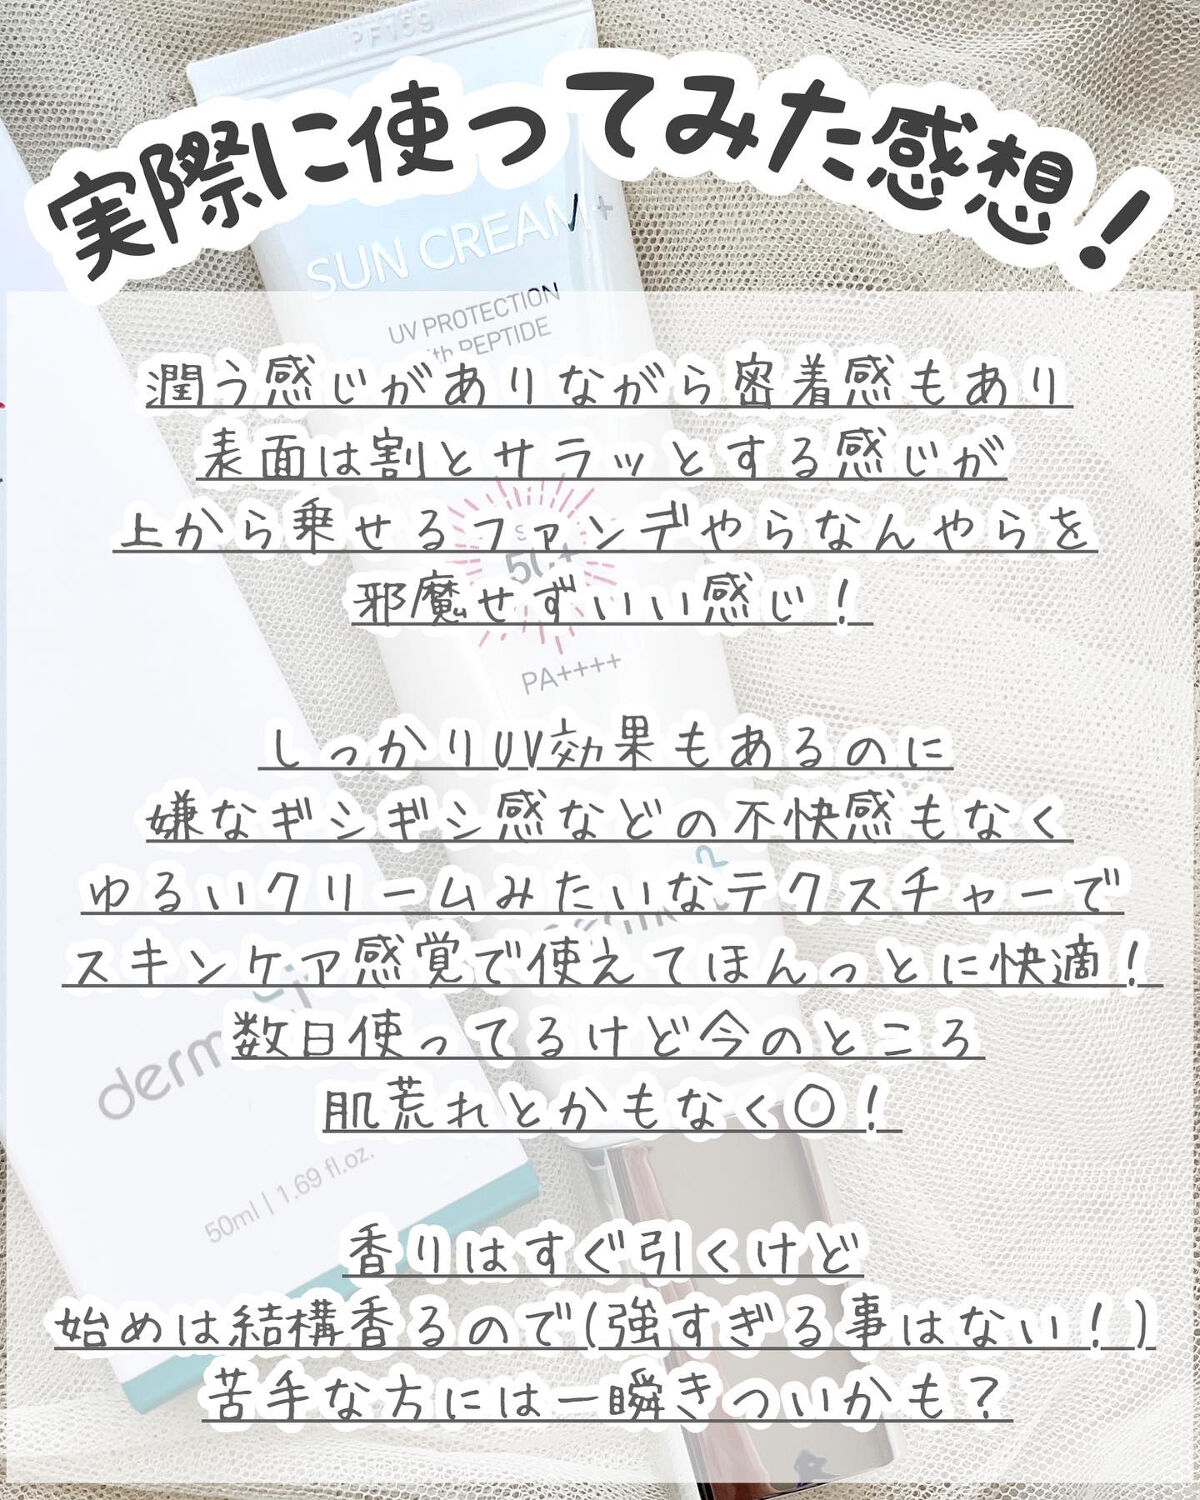 実際に使ってみた感想!
SUN CREAM+
UV PROTECTION
PEPTIDE
潤う感じがありながら密着感もあり
表面は割とサラッとする感じが
上から乗せるファンデやらなんやらを
邪魔せずいい感じ!
50+
PA++++
しっかりUV効果もあるのに
嫌なギシギシ感などの不快感もなく
ゆるいクリームみたいなテクスチャーで
スキンケア感覚で使えてほんっとに快適!
数日使ってるけど今のところ
肌荒れとかもなく〇!
50ml | 1.69 fl.oz.
香りはすぐ引くけど
始めは結構香るので(強すぎる事はない!)
苦手な方には一瞬きついかも?